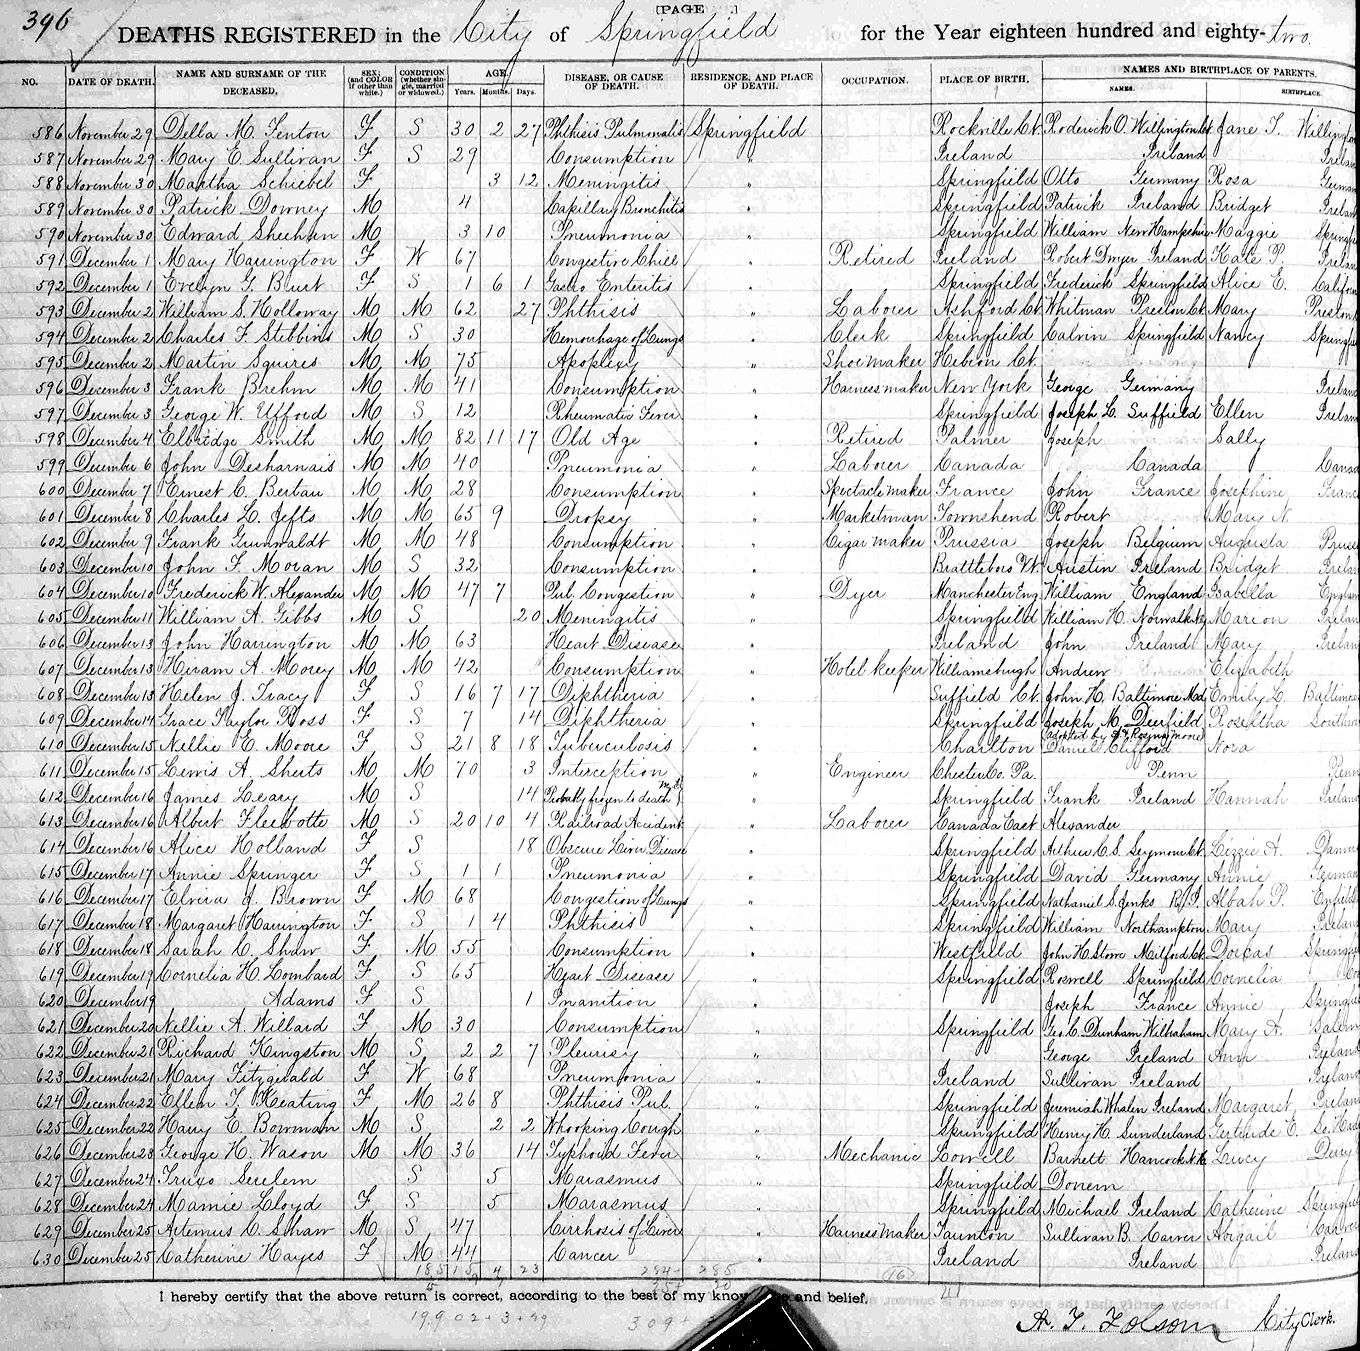 396
[PAGE ]
DEATHS REGISTERED in the City of Springfield for the Year eighteen hundred and eighty-two.
NO. DATE OF DEATH. NAME AND SURNAME OF THE DECEASED. SEX; (and COLOR if other than white.) CONDITION (whether single, married or widowed.) AGE. Years. Months. Days. DISEASE, OR CAUSE OF DEATH. RESIDENCE, AND PLACE OF DEATH. OCCUPATION. PLACE OF BIRTH. NAMES AND BIRTHPLACE OF PARENTS. NAMES. BIRTHPLACE.
586 November 29 Della M. Fenton F S 30 2 27 Phthisis Pulmonalis Springfield Rockville Ct. Roderick O. Willington Ct. Jane T. Willington
587 November 29 Mary E. Sullivan F S 29 Consumption " Ireland Ireland Ireland
588 November 30 Martha Schiebel F 3 12 Meningitis " Springfield Otto Germany Rosa German
589 November 30 Patrick Downey M 4 Capillary Bronchitis " Springfield Patrick Ireland Bridget Ireland
590 November 30 Edward Sheehan M 3 10 Pneumonia " Springfield William New Hampshire Maggie Springfi
591 December 1 Mary Harrington F W 67 Congestive Chill " Retired Ireland Robert Dwyer Ireland Kate P. Ireland
592 December 1 Evelyn G. Burt F S 1 6 1 Gastro Enteritis " Springfield Frederick Springfield Alice E. Californ
593 December 2 William S. Holloway M M 62 27 Phthisis " Laborer Ashford Ct. Whitman Preston Ct. Mary Preston
594 December 2 Charles F. Stebbins M S 30 Hemorrhage of Lungs " Clerk Springfield Calvin Springfield Nancy Springfi
595 December 2 Martin Squires M M 75 Apoplexy " Shoemaker Hebron Ct.
596 December 3 Frank Brehm M M 41 Consumption " Harness maker New York George Germany Ireland
597 December 3 George W. Ufford M S 12 Rheumatic Fever " Springfield Joseph L. Suffield Ellen Ireland
598 December 4 Elbridge Smith M M 82 11 17 Old Age " Retired Palmer Joseph Sally
599 December 6 John Desharnais M M 40 Pneumonia " Laborer Canada Canada Canad
600 December 7 Ernest C. Bertau M M 28 Consumption " Spectacle maker France John France Josephine Franc
601 December 8 Charles L. Jefts M M 65 9 Dropsy " Marketman Townshend Robert Mary N.
602 December 9 Frank Grunwaldt M M 48 Consumption " Cigar maker Prussia Joseph Belgium Augusta Pruss
603 December 10 John F. Moran M S 32 Consumption " Brattleboro Vt. Austin Ireland Bridget Irelan
604 December 10 Frederick W. Alexander M M 47 7 Pul. Congestion " Dyer Manchester Eng. William England Isabella Englan
605 December 11 William A. Gibbs M S 20 Meningitis " Springfield William H. Norwalk Marion Irelan
606 December 13 John Harrington M M 63 Heart Disease " Ireland John Ireland Mary Irelan
607 December 13 Hiram A. Morey M M 42 Consumption " Hotel keeper Williamsburgh Andrew Elizabeth
608 December 13 Helen J. Tracy F S 16 7 17 Diphtheria " Suffield Ct. John H. Baltimore Md. Emily L. Baltimor
609 December 14 Grace Taylor Ross F S 7 14 Diphtheria " Springfield Joseph M. Deerfield Rosettha
610 December 15 Nellie E. Moore F S 21 8 18 Tuberculosis " Charlton adopted by Rosina Moore Daniel Clifford Nora
611 December 15 Lewis A. Sheets M M 70 3 Interception " Engineer Chester Co. Pa. Penn Penn
612 December 16 James Leary M S 14 Probably frozen to death " Springfield Frank Ireland Hannah Ireland
613 December 16 Albert Fleebotte M S 20 10 4 Railroad Accident " Laborer Canada East Alexander
614 December 16 Alice Holland F S 18 Obscure Liver Disease " Springfield Arthur C. S. Seymour Ct. Lizzie A. Danver
615 December 17 Annie Springer F S 1 1 Pneumonia " Springfield David Germany Annie German
616 December 17 Elvira J. Brown F M 68 Congestion of Lungs " Springfield Nathaniel S. Jenks R.I. Albah P. Enfield
617 December 18 Margaret Harrington F S 1 4 Phthisis " Springfield William Northampton Mary Ireland
618 December 18 Sarah C. Shaw F M 55 Consumption " Westfield John H. Stowe Milford Ct. Dorcas Springfi
619 December 19 Cornelia H. Lombard F S 65 Heart Disease " Springfield Roswell Springfield Cornelia
620 December 19 Adams F S 1 Inanition " Joseph France Annie Springfi
621 December 20 Nellie A. Willard F M 30 Consumption " Springfield Geo. C. Dunham Wilbraham Mary A. Salem
622 December 21 Richard Kingston M S 2 2 7 Pleurisy " George Ireland Ann Ireland
623 December 21 Mary Fitzgerald F W 68 Pneumonia " Ireland Sullivan Ireland Ireland
624 December 22 Ellen T. Keating F M 26 8 Phthisis Pul. " Springfield Jeremiah Whalen Ireland Margaret Ireland
625 December 22 Harry E. Bowman M S 2 2 Whooping Cough " Springfield Henry H. Sunderland Gertrude E. So. Hadl
626 December 23 George H. Wason M M 36 14 Typhoid Fever " Mechanic Lowell Barnett Hancock N.H. Lucy Derry
627 December 24 Truxo Seulem S 5 Marasmus " Springfield Donem
628 December 24 Mamie Lloyd F S 5 Marasmus " Springfield Michael Ireland Catherine Springfi
629 December 25 Artemus C. Shaw M S 47 Cirrhosis of Liver " Harness Maker Taunton Sullivan B. Carver Abigail Carver
630 December 25 Catherine Hayes F M 44 Cancer " Ireland Ireland Ireland
I hereby certify that the above return is correct, according to the best of my know and belief.
A. T. Folsom City Clerk.